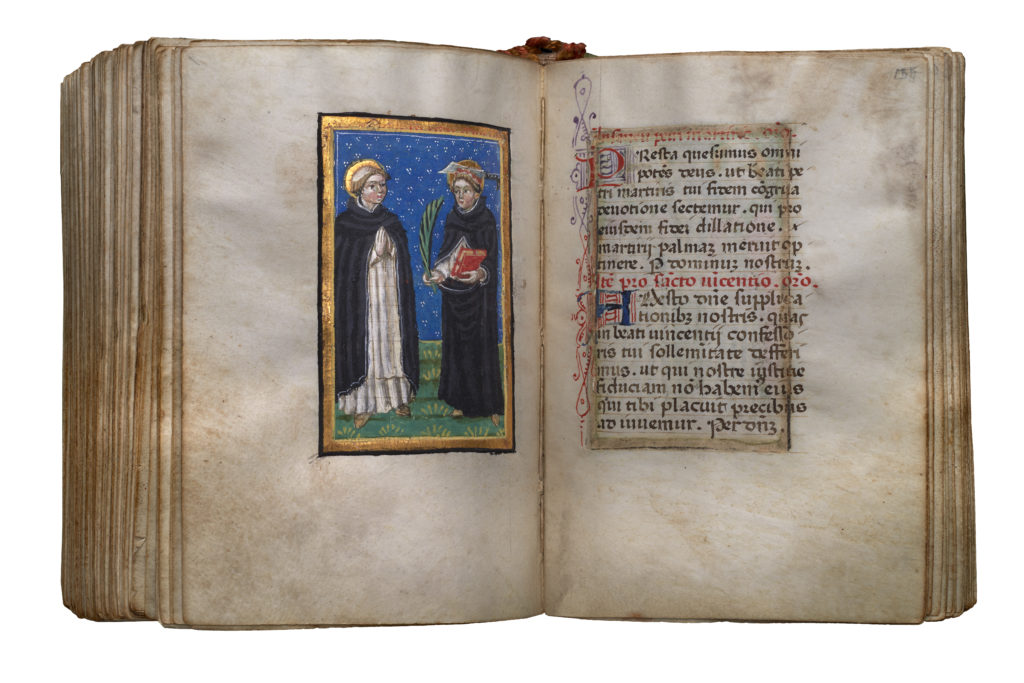 oro.
PResta quesumus omni
potēs deus. ut beati pe
tri martiris tui fidem cōgrua
devotione sectemur. qui pro
eiusdem fidei dillatione.
martirij palmaȝ meruit op
tinere. P dominuȝ nostruȝ.
pro sācto vicentio. oro.
ADesto dn̄e supplica
tionibȝ nostris. quas
in beati vincentij confesso
ris tui sollemitate defferi
mus. ut qui nostre iustitie
fiduciam nō habem⁹ eius
qui tibi placuit precibus
ad iuvemur. Per dn̄ȝ.